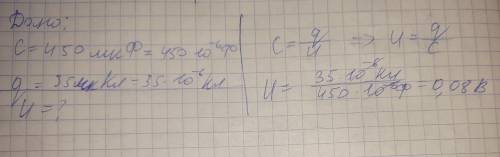 Дано:
C = 450 мкФ = 450·10⁻⁶ Ф
q = 35 мкКл = 35·10⁻⁶ Кл
U = ?
C = q/U => U = q/C
U = 35·10⁻⁶ Кл / 450·10⁻⁶ Ф = 0,08 В